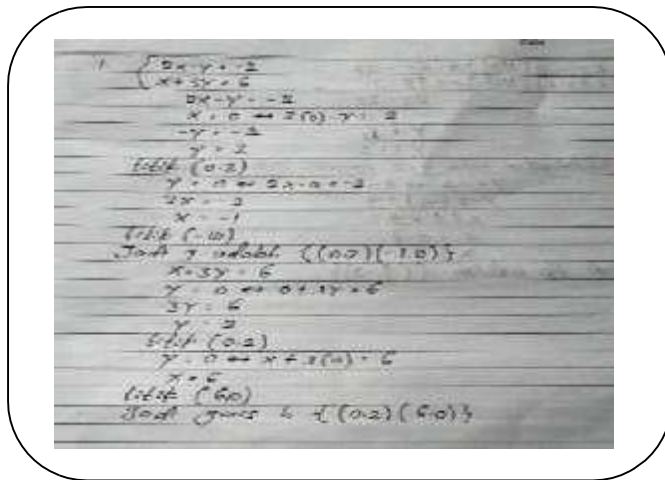 1. { 2x-y = -2
x+3y = 6
2x-y = -2
x = 0 ↔ 2(0)-y = 2
-y = -2
y = 2
titik (0.2)
y = 0 ↔ 2x-0 = -2
2x = -2
x = -1
titik (-1.0)
Jadi {(0.2)(-1.0)}
x+3y = 6
y = 0 ↔ 0+3y = 6
3y = 6
y = 2
titik (0.2)
y = 0 ↔ x+3(0) = 6
x = 6
titik (6.0)
Jadi garis {(0.2)(6.0)}